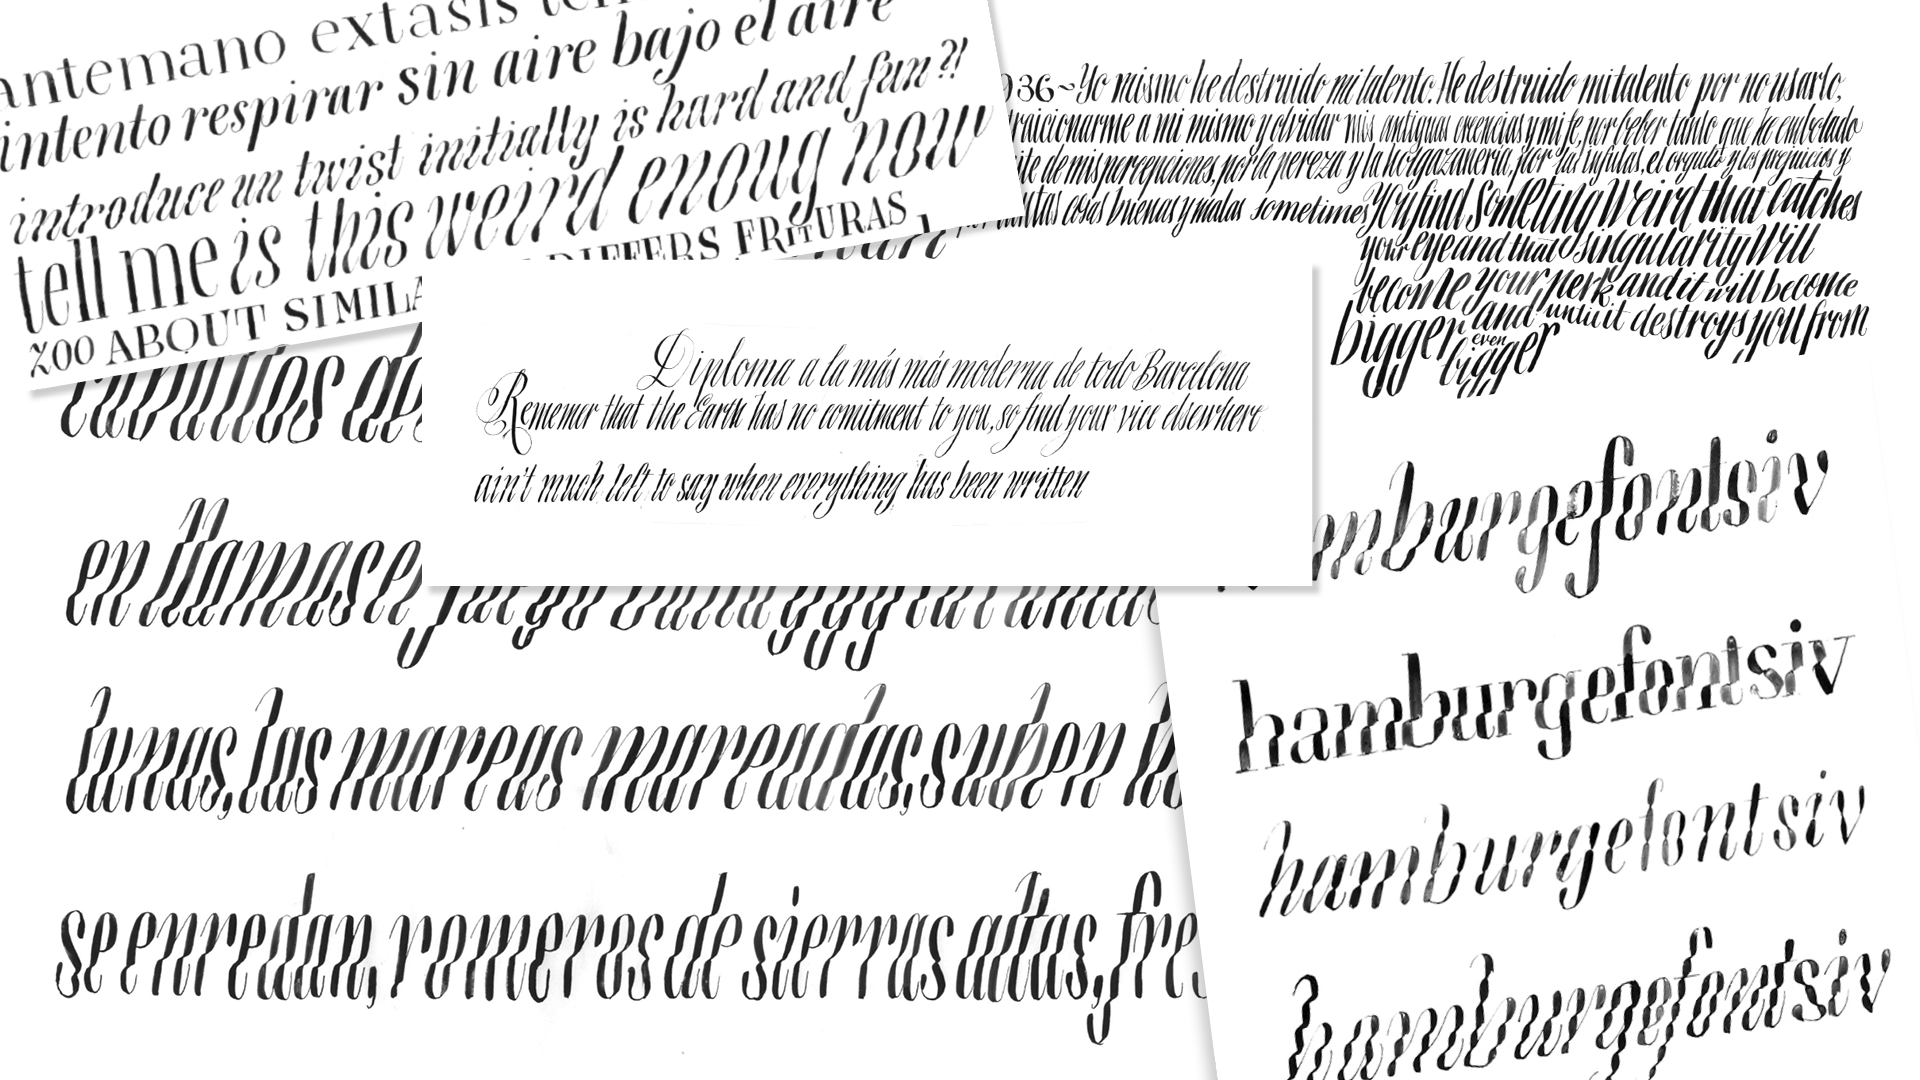 antemano extasis
intento respirar sin aire bajo el aire
introduce un twist initially is hard and fun?!
tell me is this weird enoug now
%00 ABOUT DIFFERS FRITURAS
36~Yo mismo he destruido mi talento. He destruido mi talento por no usarlo,
traicionarme a mi mismo y olvidar mis antiguas creencias y mi fe, por beber tanto que he embotado
de mis percepciones, por la pereza y la holgazanería, por las ínfulas, el orgullo y los prejuicios y
cosas buenas y malas sometimes You find something Weird that catches
your eye and that singularity Will
become your perk and it will become
bigger and until it destroys you from
even
bigger
Diploma a la más más moderna de todo Barcelona
Rememer that the Earth has no comitment to you, so find your vice elsewhere
ain't much left to say when everything has been written
en llamas
lunas, las mareas mareadas, suben
se enredan, romeros de sierras altas,
hamburgefontsiv
hamburgefontsiv
hamburgefontsiv